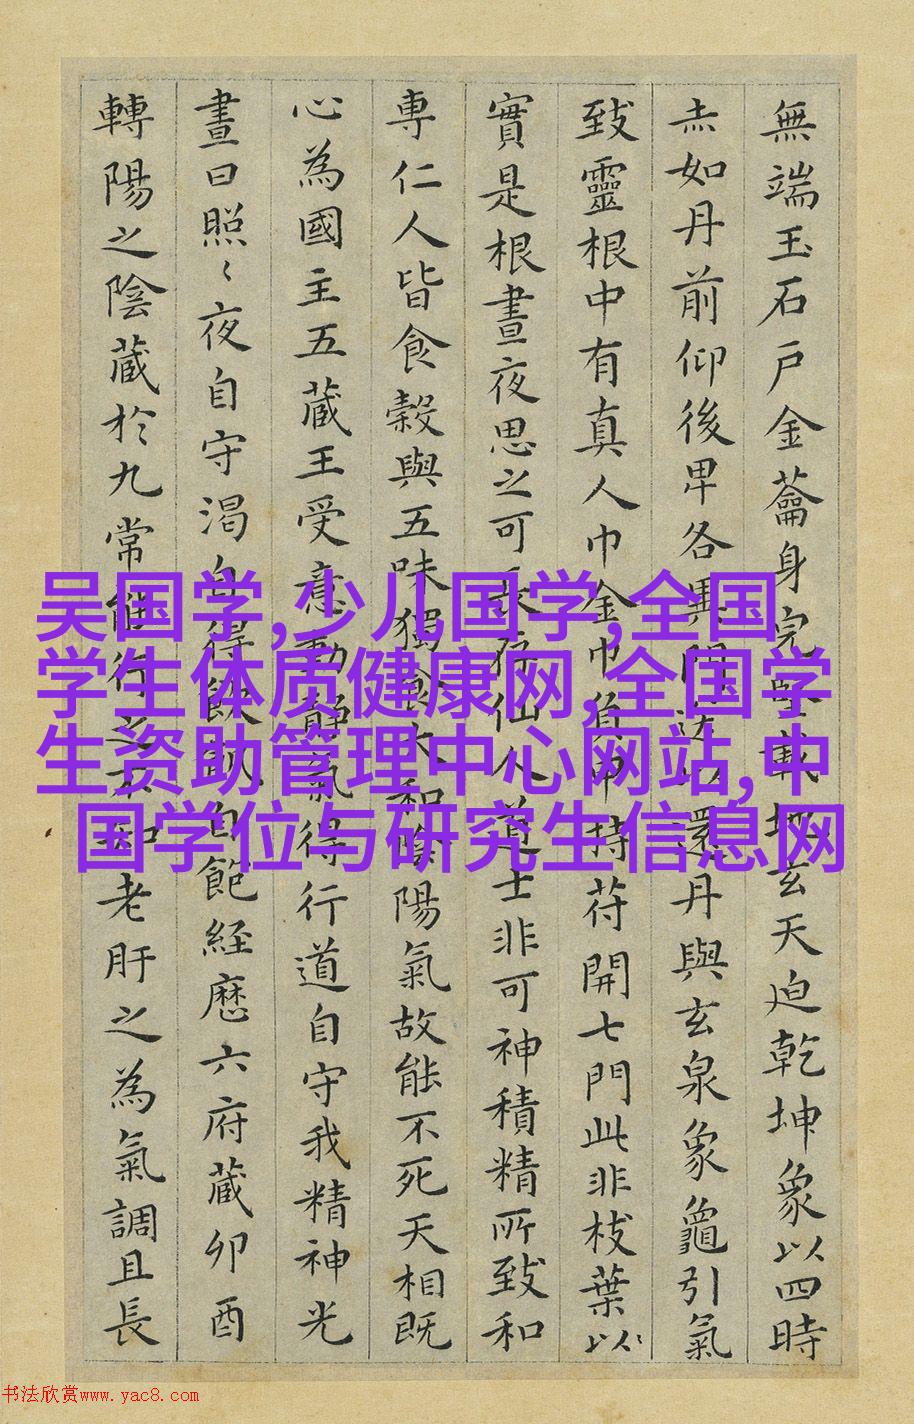 無端玉石戶金蘥身完堅載地玄天迫乾坤象以四時
赤如丹前仰後卑各異門送以還丹與玄泉象龜引氣
致靈根中有真人巾金巾負甲持苻開七門此非枝葉以
實是根晝夜思之可長存仙人道士非可神積精所致和
專仁人皆食穀與五味獨食太和陰陽氣故能不死天相既
心為國主五藏王受意動靜氣得行道自守我精神光
晝日照〻夜自守渴自得飲飢自飽經歷六府藏卯酉
轉陽之陰藏於九常能行之不知老肝之為氣調且長
吴国学,少儿国学,全国
学生体质健康网,全国学
生资助管理中心网站,中
国学位与研究生信息网
书法欣赏www.yac8.com